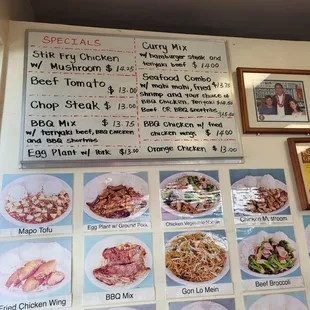 SPECIALS
Stir Fry Chicken
w/ Mushroom $ 14.25
Beef Tomato $ 13.00
Chop Steak $ 13.00
BBQ Mix $ 13.75
w/ teriyaki beef, BBQ Chicken
and BBQ Shortribs
Egg Plant w/ Pork $ 13.00
Curry Mix
w/ hamburger steak and
teriyaki beef $ 14.00
Seafood Combo $ 13.75
w/ mahi mahi, fried
shrimp and your choice of
BBQ Chicken, Teriyaki
Beef OR BBQ Shortribs
BBQ Chicken w/ fried
chicken wings $ 14.00
Orange Chicken $ 13.00
Mapo Tofu
Egg Plant w/ Ground Pork
Chicken Vegetable
Chicken w/ Mushroom
Fried Chicken Wing
BBQ Mix
Gon Lo Mein
Beef Broccoli